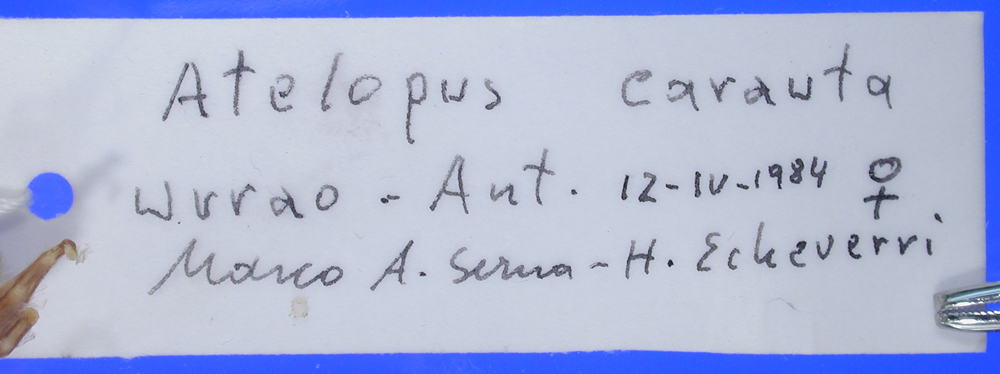 Atelopus carauta
Urrao - Ant. 12-IV-1984 ♀
Marco A. Serna - H. Echeverri